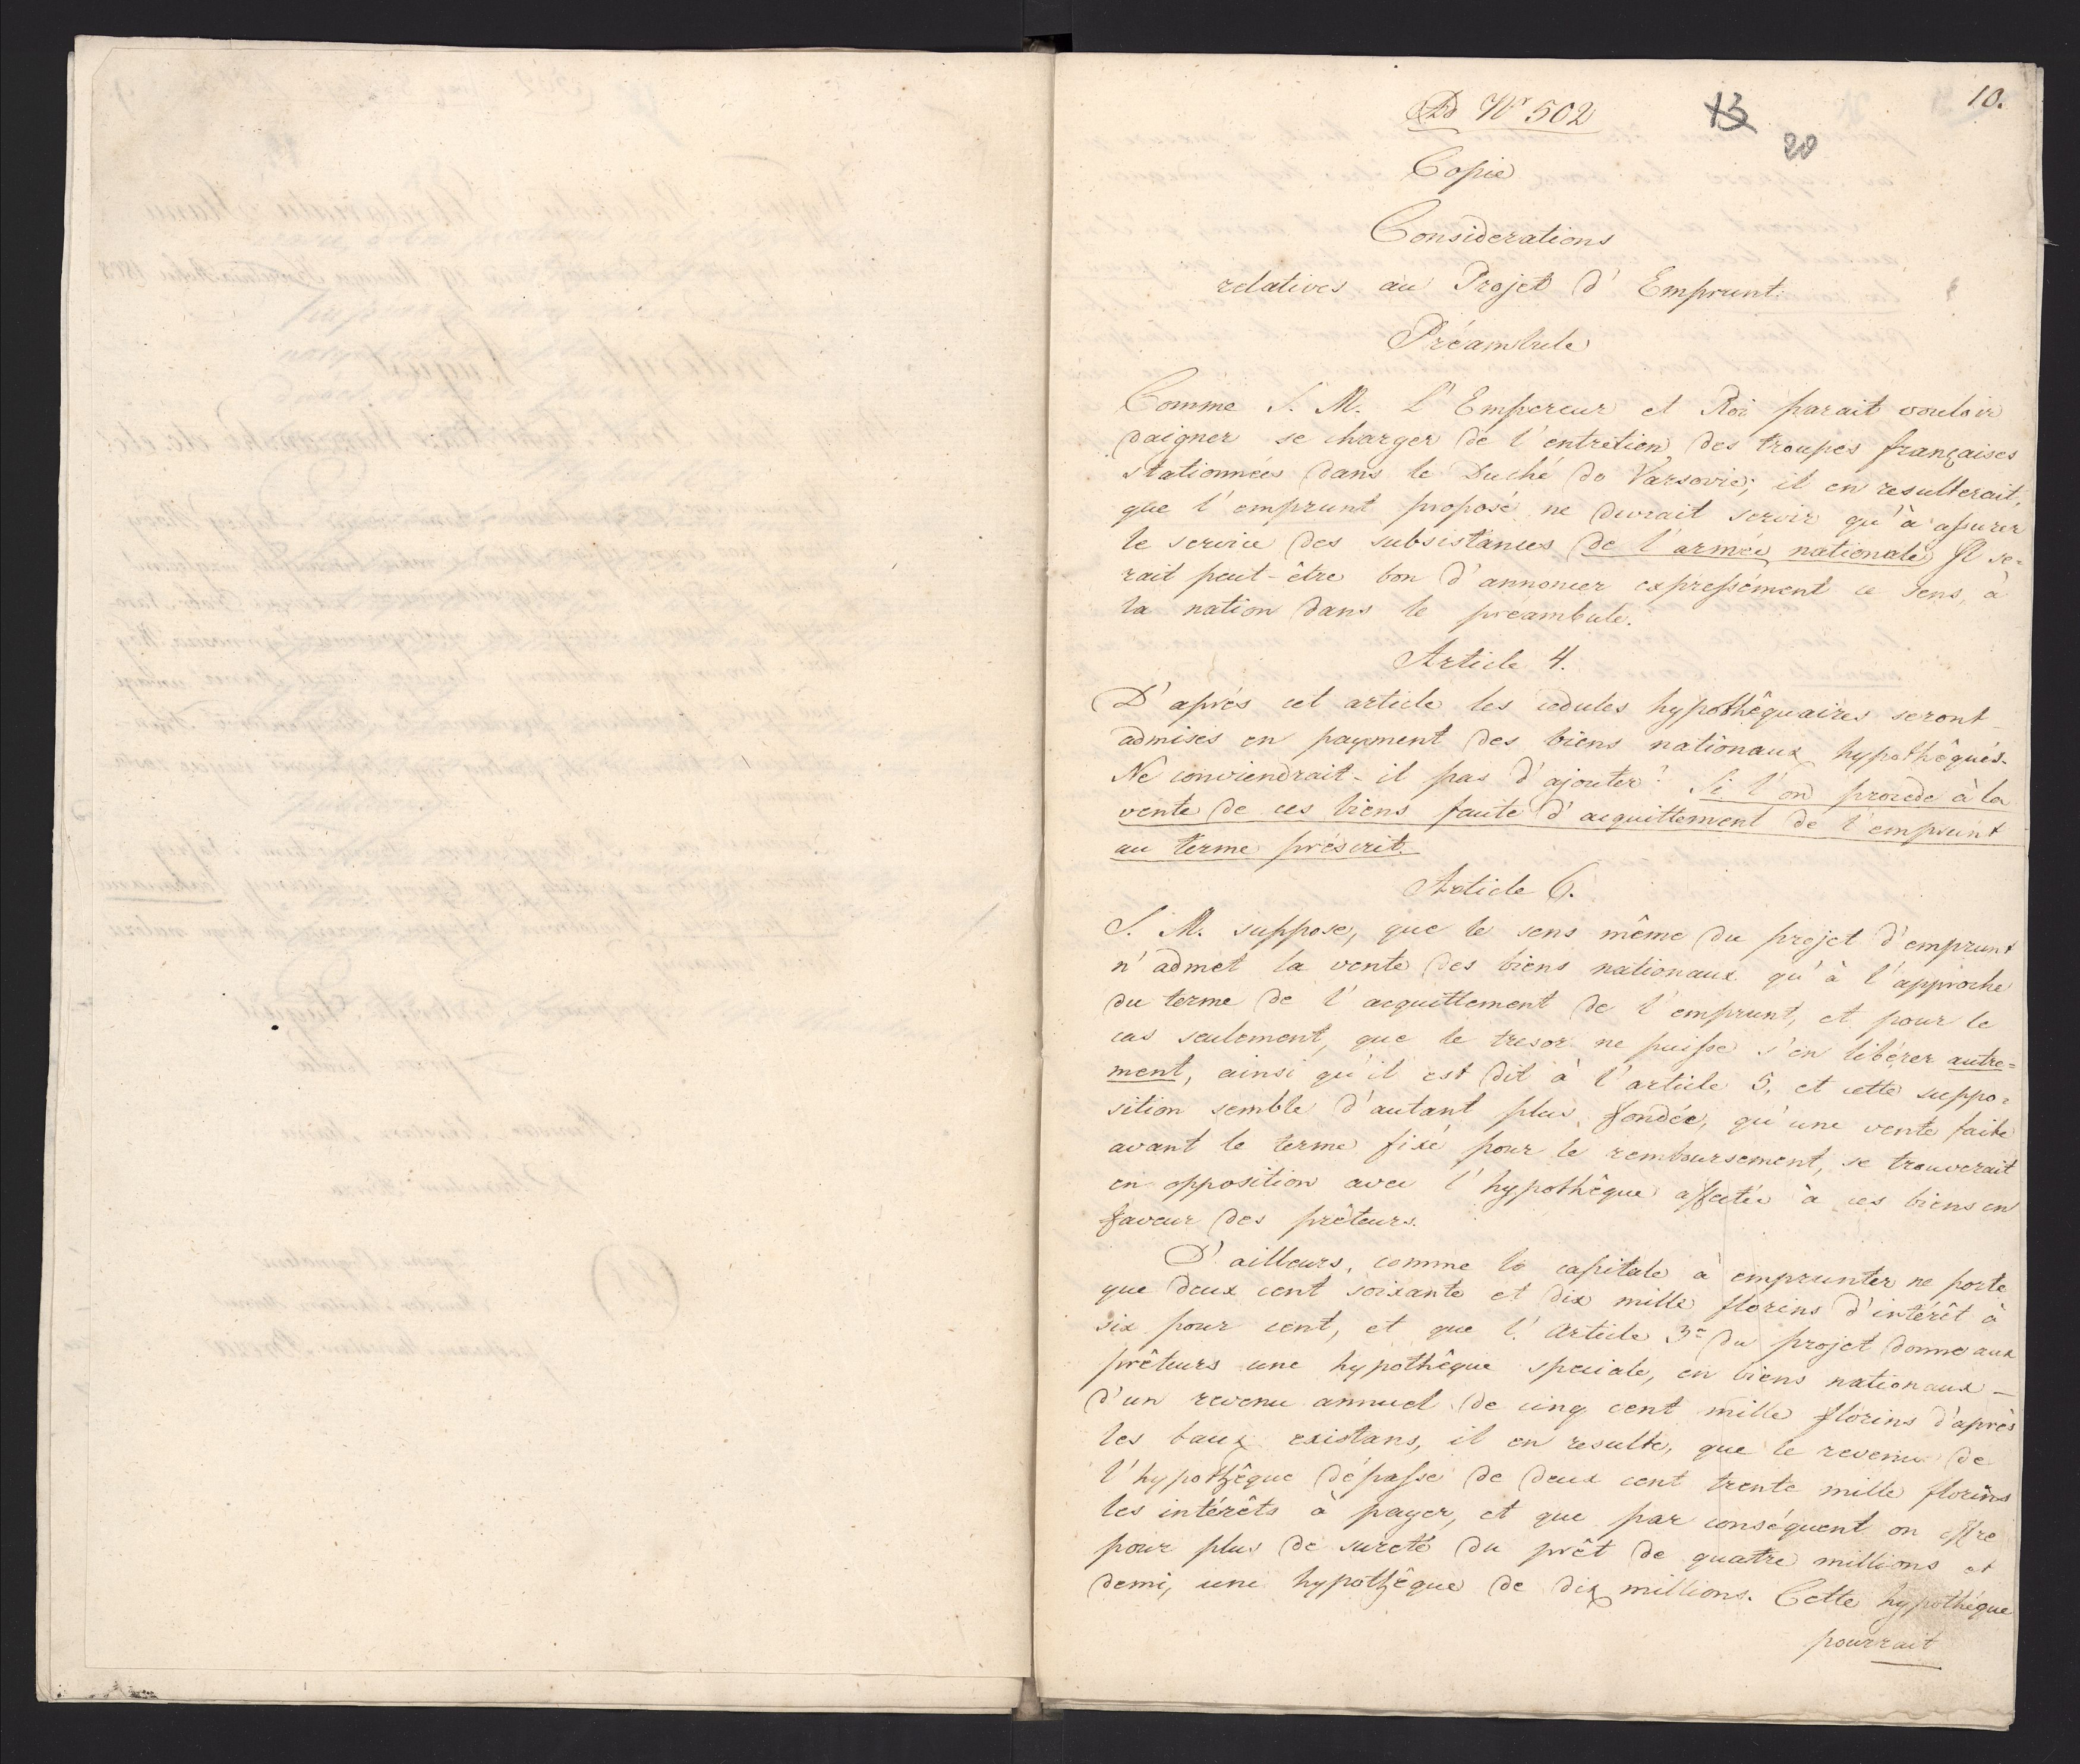 10.
Ad Nr 502
13
20
Copie
Considerations
relatives au Projet d'Emprunt.
Préambule
Comme S. M. L'Empereur et Roi parait vouloir
daigner se charger de l'entretien des troupes françaises
stationnées dans le Duché de Varsovie; il en resulterait,
que l'emprunt proposé ne devrait servir qu'à assurer
le service des subsistances de l'armée nationale. Il se=
rait peut-être bon d'annoncer expressément ce sens, à
la nation dans le preambule.
Article 4.
D'aprés cet article les cedules hypothêquaires seront
admises en payement des biens nationaux hypothêqués.
Ne conviendrait-il pas d'ajouter? Si l'on procede à la
vente de ces biens faute d'acquittement de l'emprunt
au terme préscrit.
Article 6.
S. M. suppose, que le sens même du projet d'emprunt
n'admet la vente des biens nationaux qu'à l'approche
du terme de l'acquittement de l'emprunt, et pour le
cas seulement, que le tresor ne puisse s'en libérer autre=
ment, ainsi qu'il est dit à l'article 5, et cette suppo=
sition semble d'autant plus fondée, qu'une vente faite
avant le terme fixé pour le remboursement, se trouverait
en opposition avec l'hypothêque affectée à ces biens en
faveur des prêteurs.
D'ailleurs, comme le capitale à emprunter ne porte
que deux cent soixante et dix mille florins d'intérêt à
six pour cent, et que l'Article 3e du projet donne aux
prêteurs une hypothêque speciale, en biens nationaux -
d'un revenu annuel de cinq cent mille florins d'après
les baux existans, il en resulte, que le revenu de
l'hypothêque dépasse de deux cent trente mille florins
les intérêts à payer, et que par conséquent on offre
pour plus de sureté du prêt de quatre millions et
demi, une hypothêque de dix millions. Cette hypothêque
pourrait